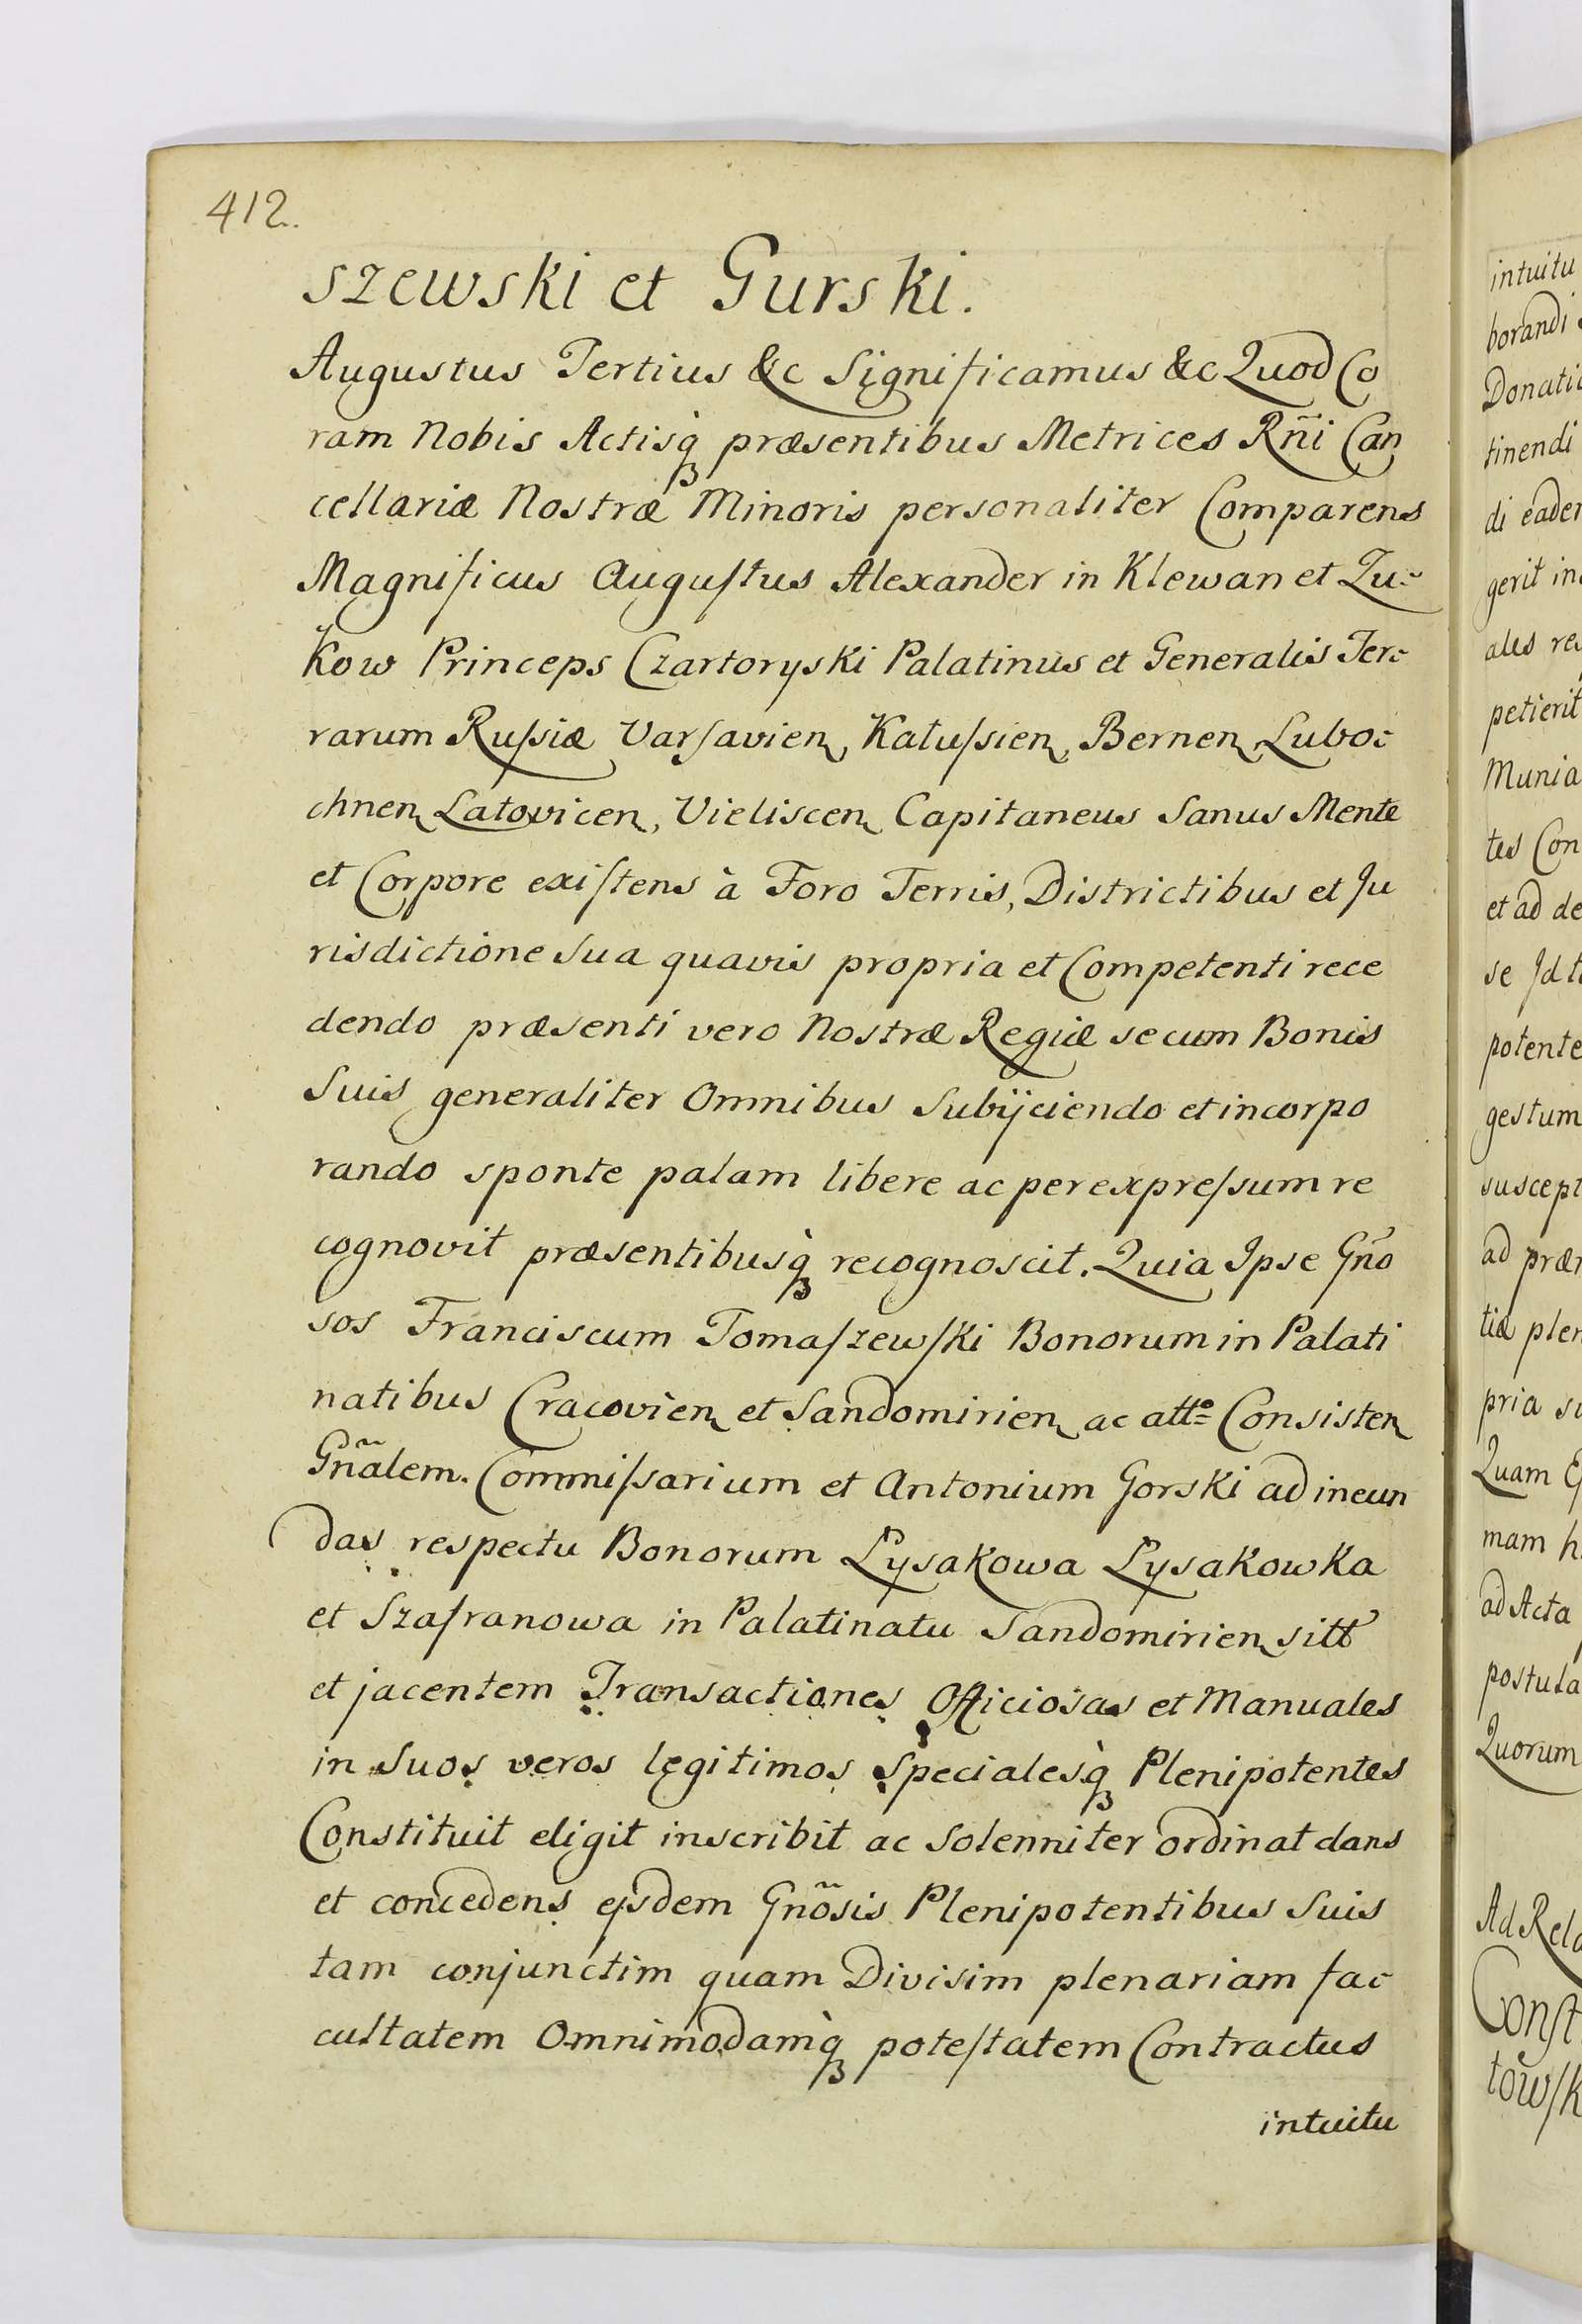 412.
szewski et Gurski.
Augustus Tertius &c Significamus &c Quod Co
ram Nobis Actisq̀ præsentibus Metrices Rñi Can
cellariæ Nostræ Minoris personaliter Comparens
Magnificus Auguſtus Alexander in Klewan et Zu-
kow Princeps Czartoryski Palatinus et Generalis Ter-
rarum Ruſsiæ Varſavien, Katuſsien, Bernen Lubo-
chnen Latovicen, Vieliscen Capitaneus Sanus Mente
et Corpore exiſtens à Foro Terris, Districtibus et Ju
risdictione Sua quavis propria et Competenti rece
dendo præsenti vero Nostræ Regiæ secum Bonis
Suis generaliter Omnibus Subijciendo et incorpo
rando sponte palam libere ac per expreſsum re
cognovit præsentibusq̀ recognoscit. Quia Ipse Gño
sos Franciscum Tomaſzewſki Bonorum in Palati
natibus Cracovien et Sandomirien ac atto Consisten
Gñalem. Commiſsarium et Antonium Gorski ad ineun
das respectu Bonorum Lysakowa Lysakowka
et Szafranowa in Palatinatu Sandomirien sitt
et jacentem Transactiones Officiosas et Manuales
in Suos veros legitimos Specialesq̀ Plenipotentes
Constituit eligit inscribit ac Solenniter ordinat dans
et concedens ejsdem Gñosis Plenipotentibus Suis
tam conjunctim quam Divisim plenariam fac-
cultatem Omnimodamq̀ poteſtatem Contractus
intuitu
intuitu
borandi
Donati
tinendi
di eader
gerit in
ales re
petierit
Munia
tes Con
et ad de
se Id t
potente
gestum
suscept
ad præ
tia plen
pria s
Quam
mam h
ad Acta
postula
Quorum
Ad Rela
Conſt
towſk